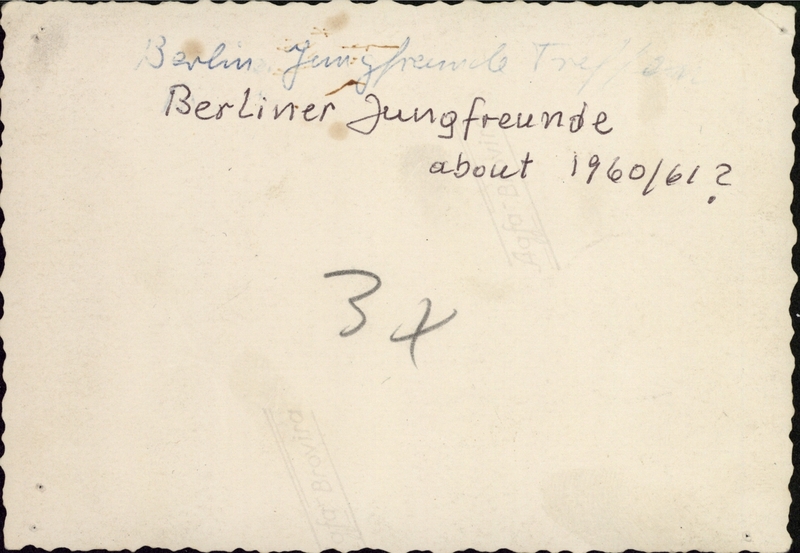 Berlin Jungfreunde Treffen
Berliner Jungfreunde
about 1960/61?
Agfa Brovira
3x
Agfa Brovira